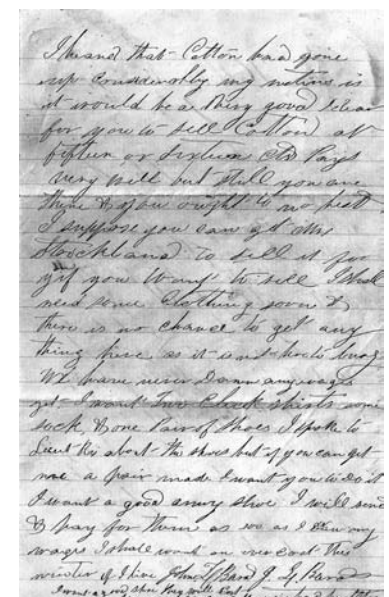 I heard that Cotton had gone
up considerably my notions is
it would be a thing good idear
for you to sell Cotton at
fifteen or sixteen cts Pays
very well but still you are
there & you ought to no best
I suppose you can get Mr
Stockland to sell it for
you if you want to sell I shall
need some Clothing soon &
there is no chance to get any
thing here as it is not here to buy
We have never drawn any wages
yet I want two Check shirts some
sock & one Pair of Shoes I spoke to
Lieut about the shoes but if you can get
me a pair made I want you to do it
I want a good army shoe I will send
& pay for them as soo as I draw my
wages I shall want an over coat this
winter if I live John
I want a good shoe